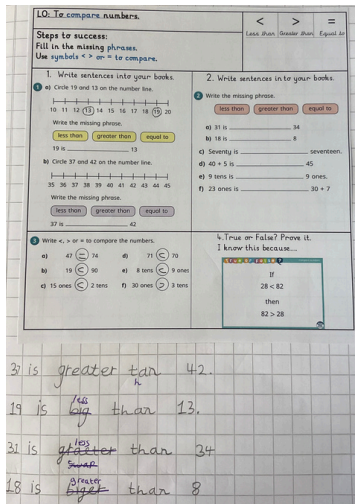 LO: To compare numbers.
Steps to success:
Fill in the missing phrases.
Use symbols < > or = to compare.
< > =
Less than Greater than Equal to
1. Write sentences into your books.
1 a) Circle 19 and 13 on the number line.
10 11 12 13 14 15 16 17 18 19 20
Write the missing phrase.
less than greater than equal to
19 is 13
b) Circle 37 and 42 on the number line.
35 36 37 38 39 40 41 42 43 44 45
Write the missing phrase.
less than greater than equal to
37 is 42
2. Write sentences into your books.
2 Write the missing phrase.
less than greater than equal to
a) 31 is 34
b) 18 is 8
c) Seventy is seventeen.
d) 40 + 5 is 45
e) 9 tens is 9 ones.
f) 23 ones is 30 + 7
3 Write <, > or = to compare the numbers.
a) 47 = 74 d) 71 < 70
b) 19 < 90 e) 8 tens < 9 ones
c) 15 ones < 2 tens f) 30 ones > 3 tens
4. True or False? Prove it.
I know this because...
TRUE OR FALSE?
If
28 < 82
then
82 > 28
37 is greater tan 42.
h
less
19 is big than 13.
less
31 is greater than 34
swap
greater
18 is biger than 8